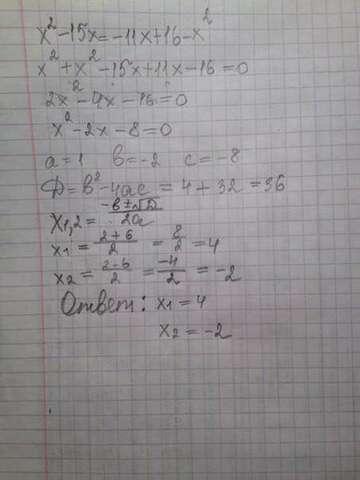 x² - 15x = -11x + 16 - x²
x² + x² - 15x + 11x - 16 = 0
2x² - 4x - 16 = 0
x² - 2x - 8 = 0
a = 1 b = -2 c = -8
D = b² - 4ac = 4 + 32 = 36
x₁,₂ = (-b ± √D)/2a
x₁ = (2+6)/2 = 8/2 = 4
x₂ = (2-6)/2 = -4/2 = -2
Ответ: x₁ = 4
x₂ = -2